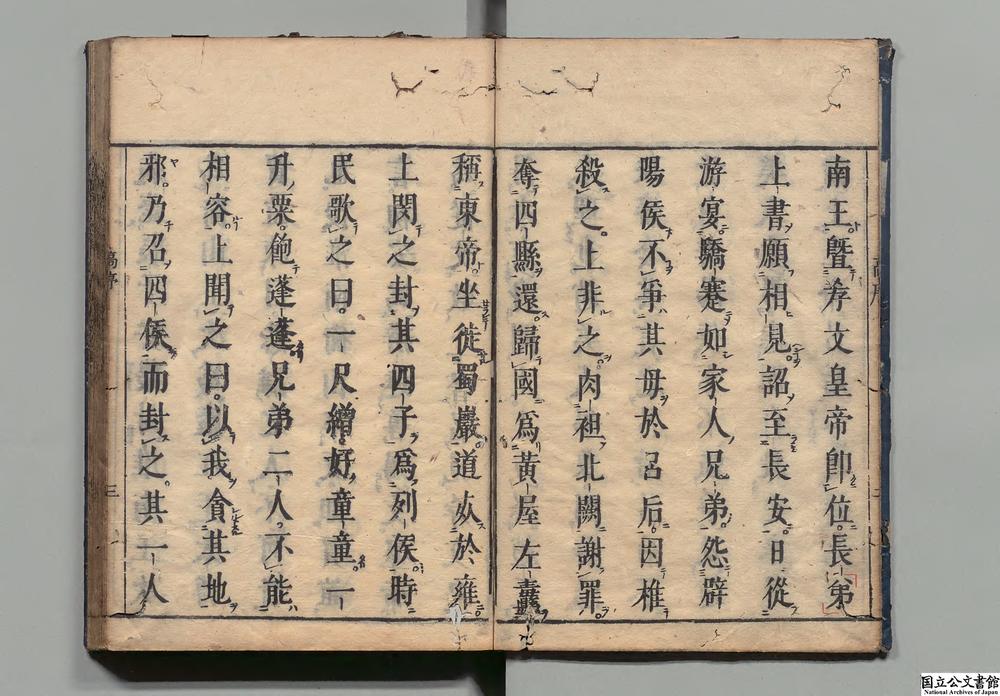 南王曁孝文皇帝卽位長弟
上書願相見詔至長安日從
游宴驕蹇如家人兄弟怨辟
陽侯不爭其母於呂后因椎
殺之上非之肉袒北闕謝罪
奪四縣還歸國爲黃屋左纛
稱東帝坐徙蜀嚴道死於雍
上閔之封其四子爲列侯時
民歌之曰一尺繒好童童一
升粟飽蓬蓬兄弟二人不能
相容上聞之曰以我貪其地
邪乃召四侯而封之其一人
高序
三
国立公文書館
National Archives of Japan